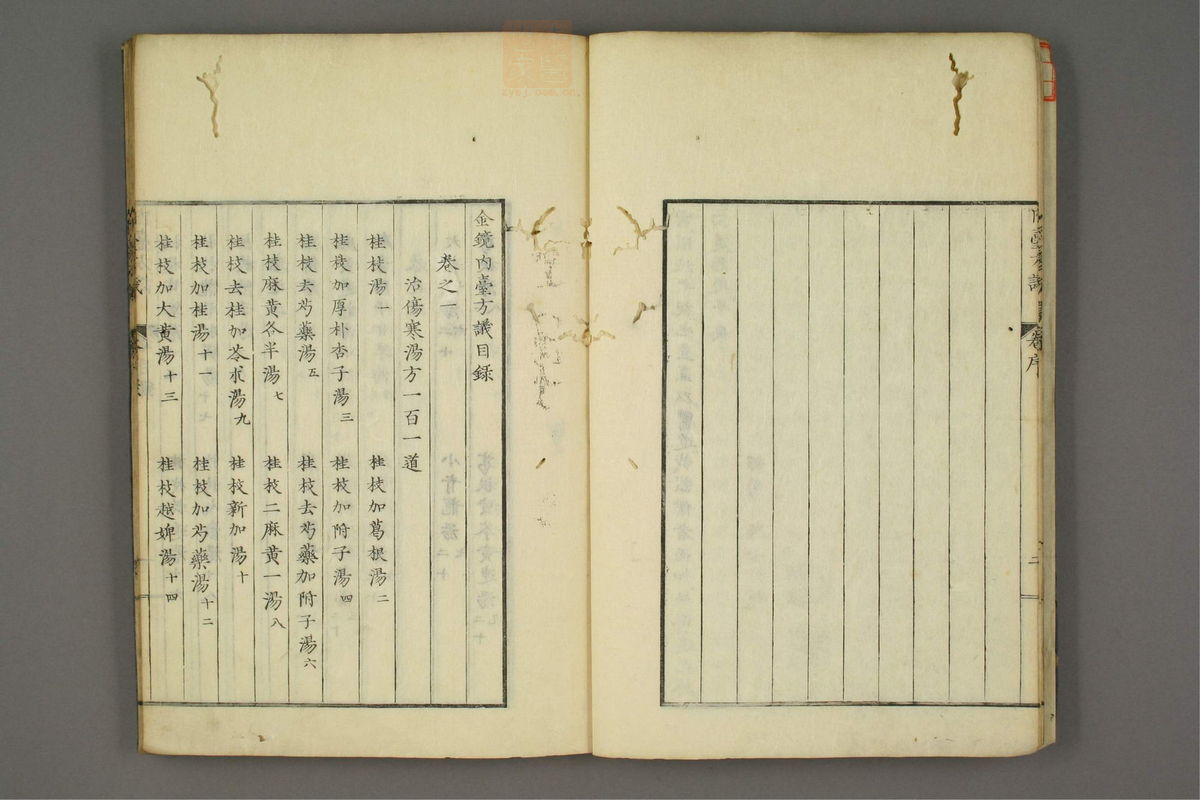 序
二
金鏡內臺方議目録
卷之一
治傷寒湯方一百一道
桂枝湯一 桂枝加葛根湯二
桂枝加厚朴杏子湯三 桂枝加附子湯四
桂枝去芍藥湯五 桂枝去芍藥加附子湯六
桂枝麻黃各半湯七 桂枝二麻黃一湯八
桂枝去桂加苓朮湯九 桂枝新加湯十
桂枝加桂湯十一 桂枝加芍藥湯十二
桂枝加大黃湯十三 桂枝越婢湯十四